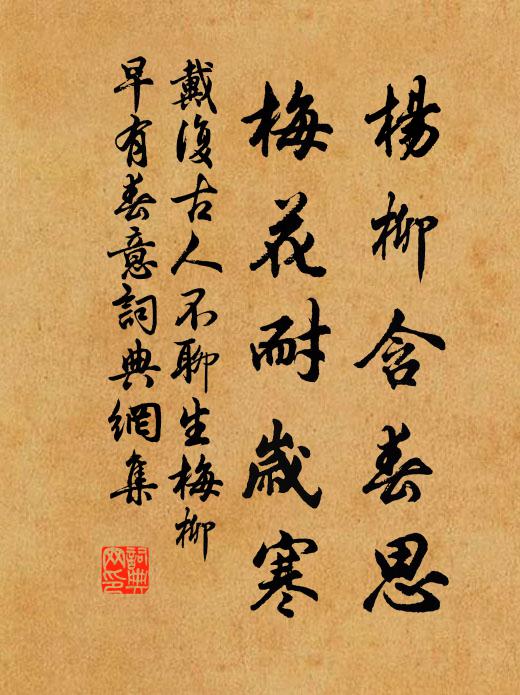 楊柳含春思
梅花耐歲寒
戴復古人不聊生梅柳
早有春意詞典網集
詞典
網印